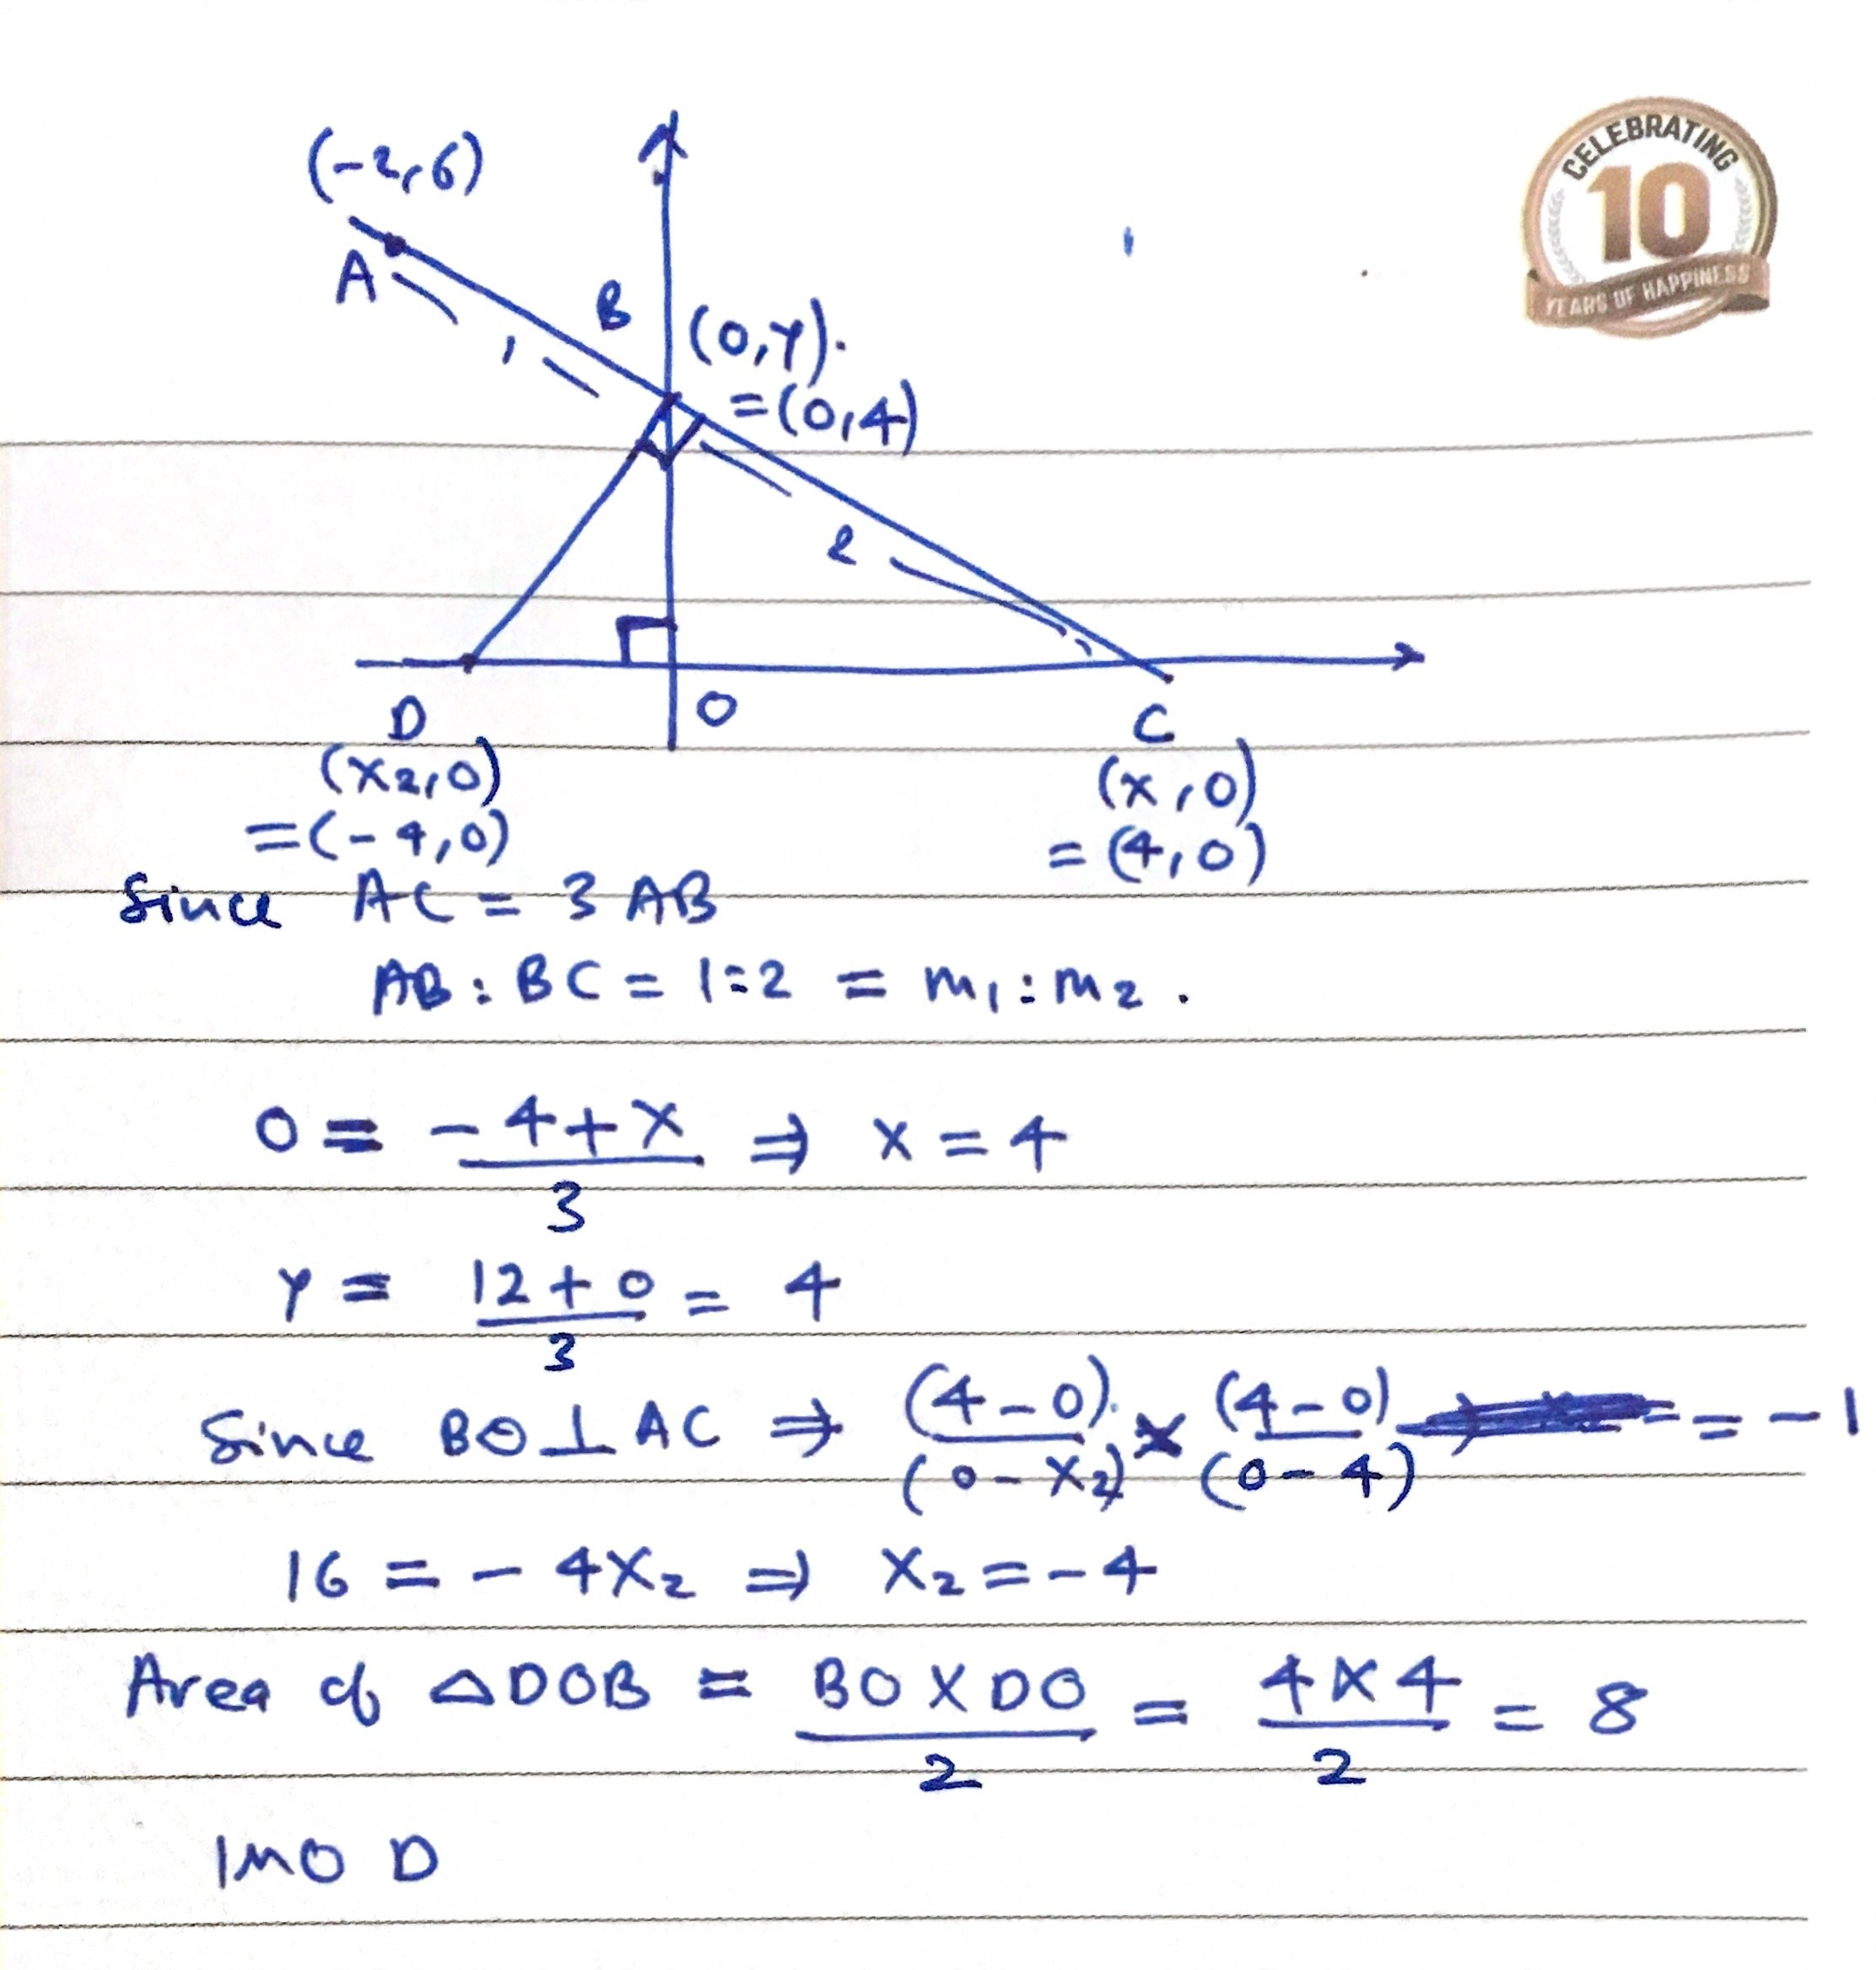 CELEBRATING
10
YEARS OF HAPPINESS
(-2,6)
A
1
B
(0,Y).
=(0,4)
2
D
O
C
(x2,0)
=(-4,0)
(x,0)
=(4,0)
Since AC = 3 AB
AB : BC = 1:2 = m1 : m2 .
0 = -4+x/3 ⇒ x = 4
Y = 12+0/3 = 4
Since BO ⊥ AC ⇒ (4-0)/(0-x2) × (4-0)/(0-4) = -1
16 = -4x2 ⇒ x2 = -4
Area of △DOB = BO X DO/2 = 4X4/2 = 8
IMO D